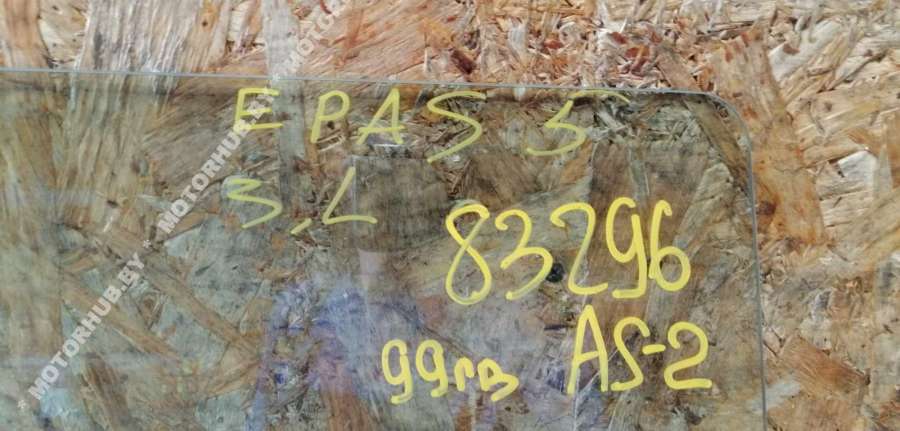 E PAS 5
3,L
83296
99гв AS-2
* MOTORHUB.BY * MOTORHUB.BY * MOTORHUB.BY